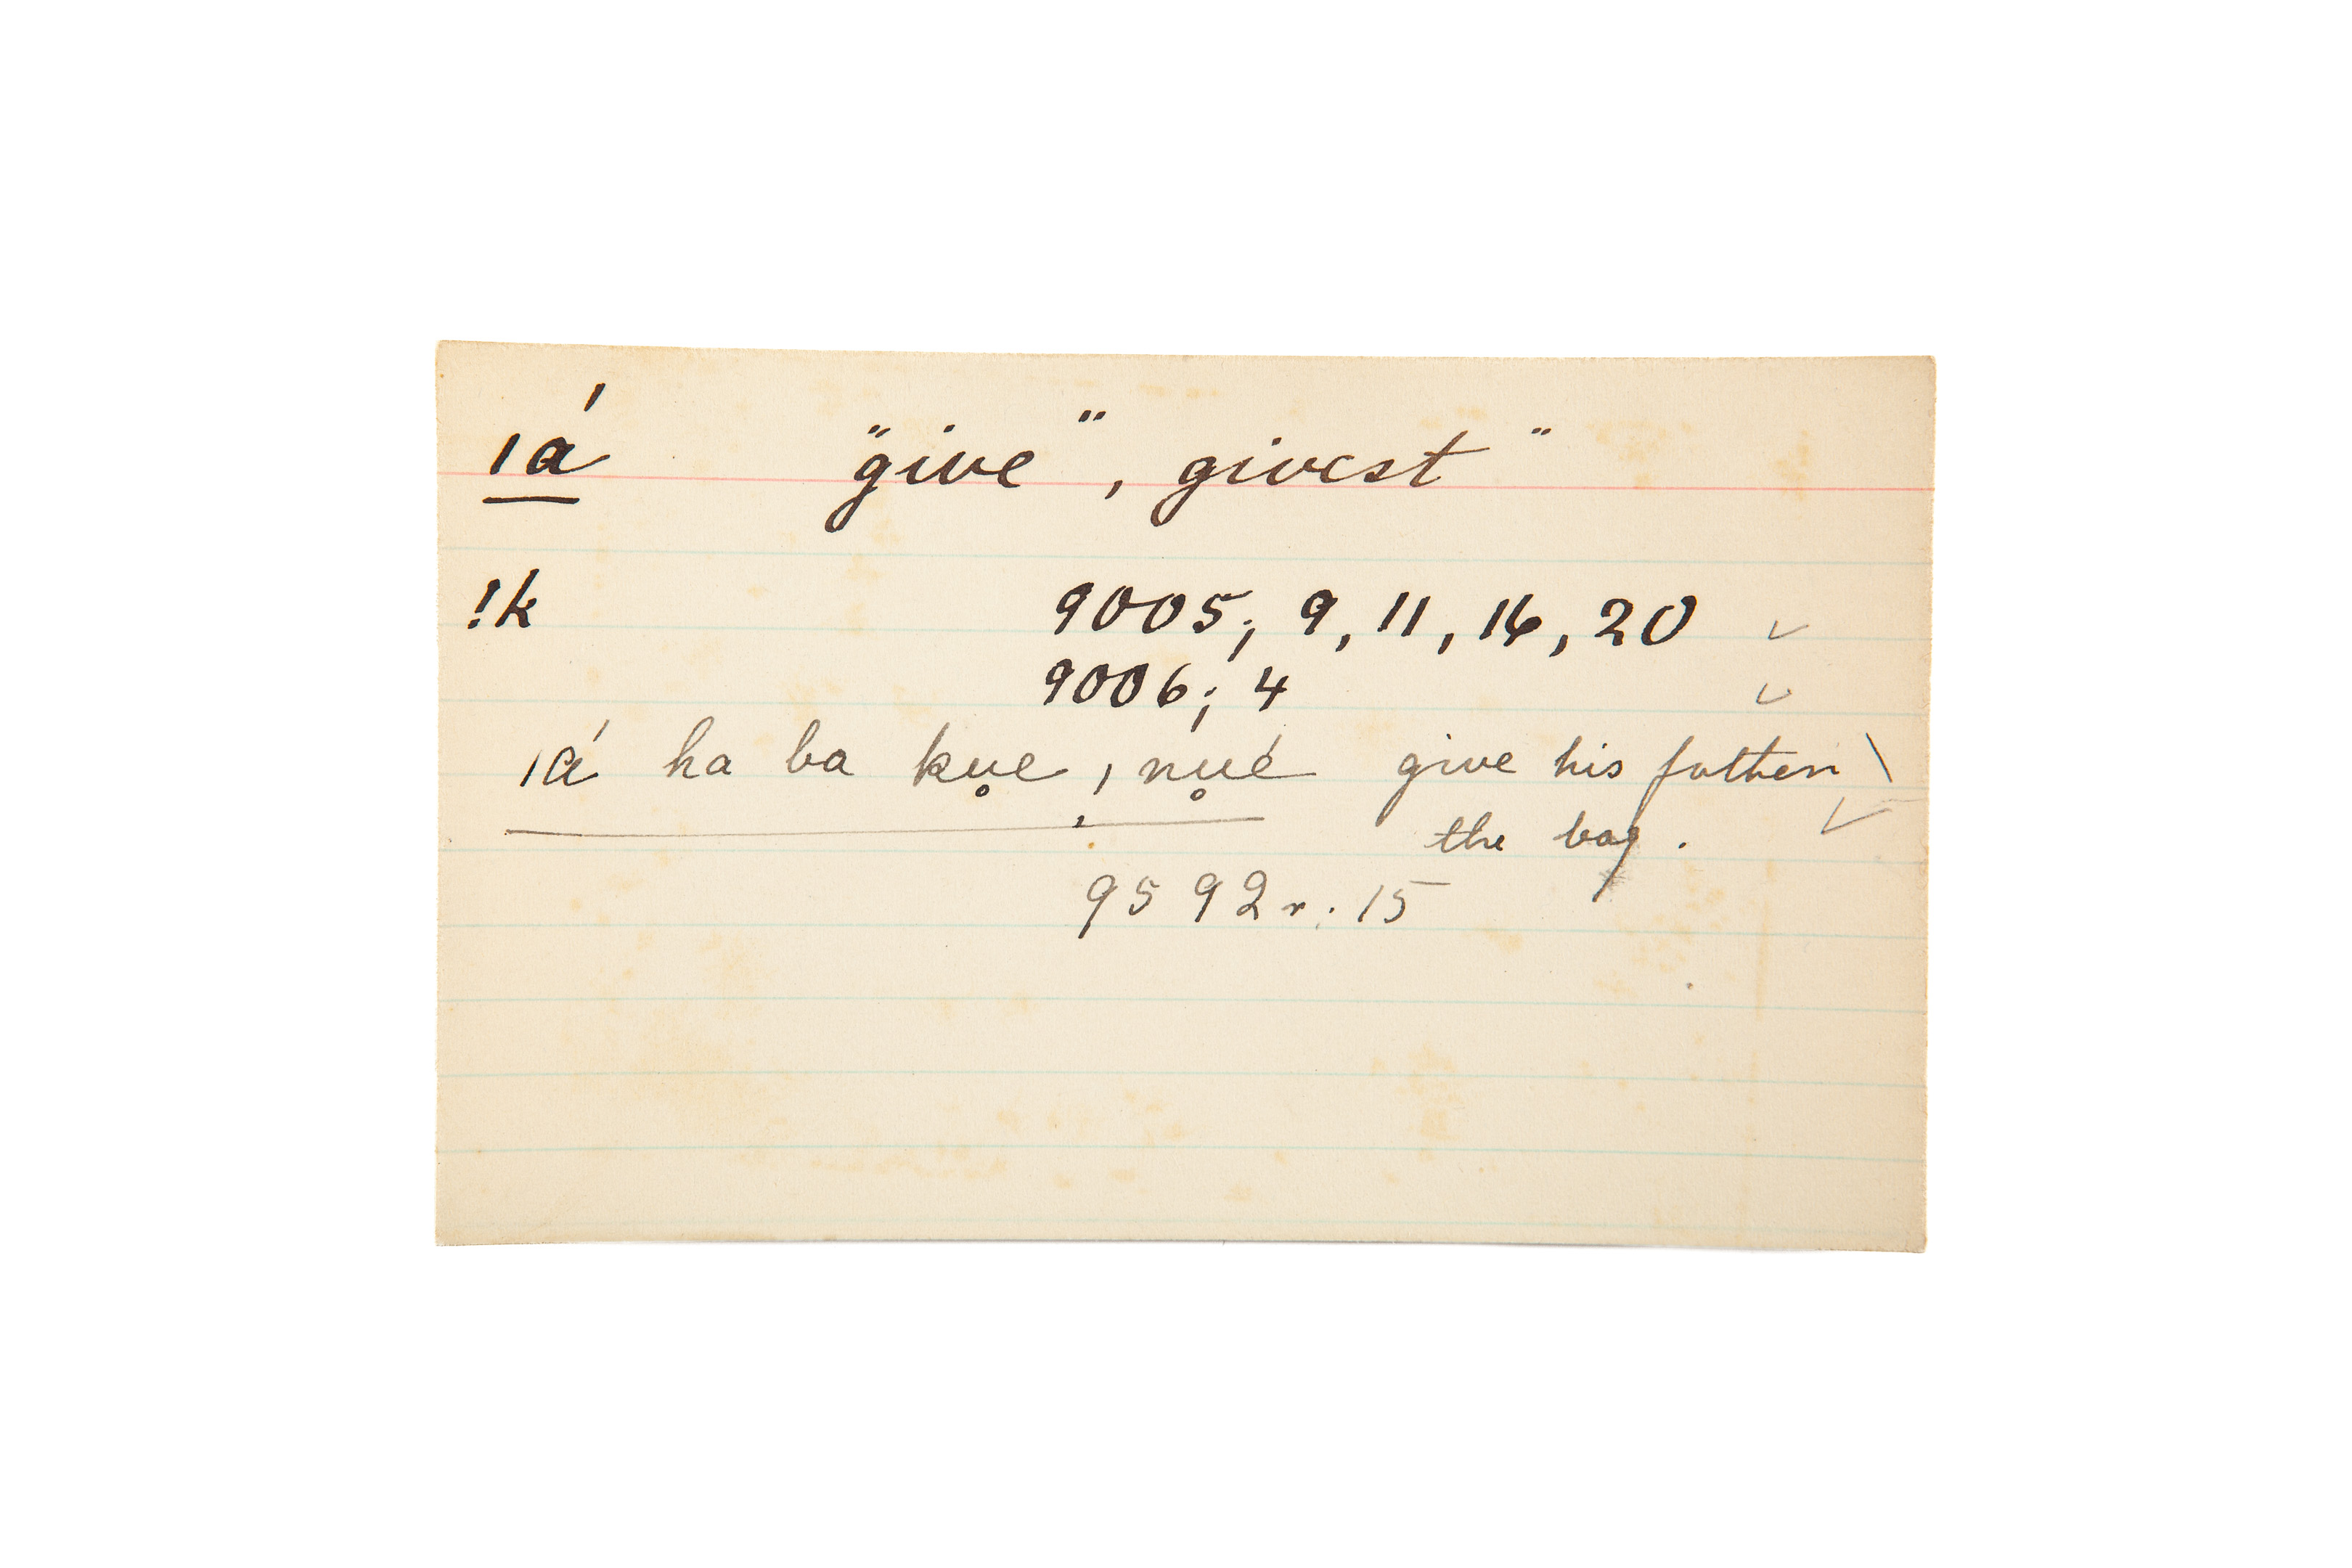 ıá "give", givest"
!k 9005; 9, 11, 16, 20 ✓
9006; 4 ✓
ıá ha ba ku̥e ı nu̥é give his father \
the bag. ✓
9592r. 15